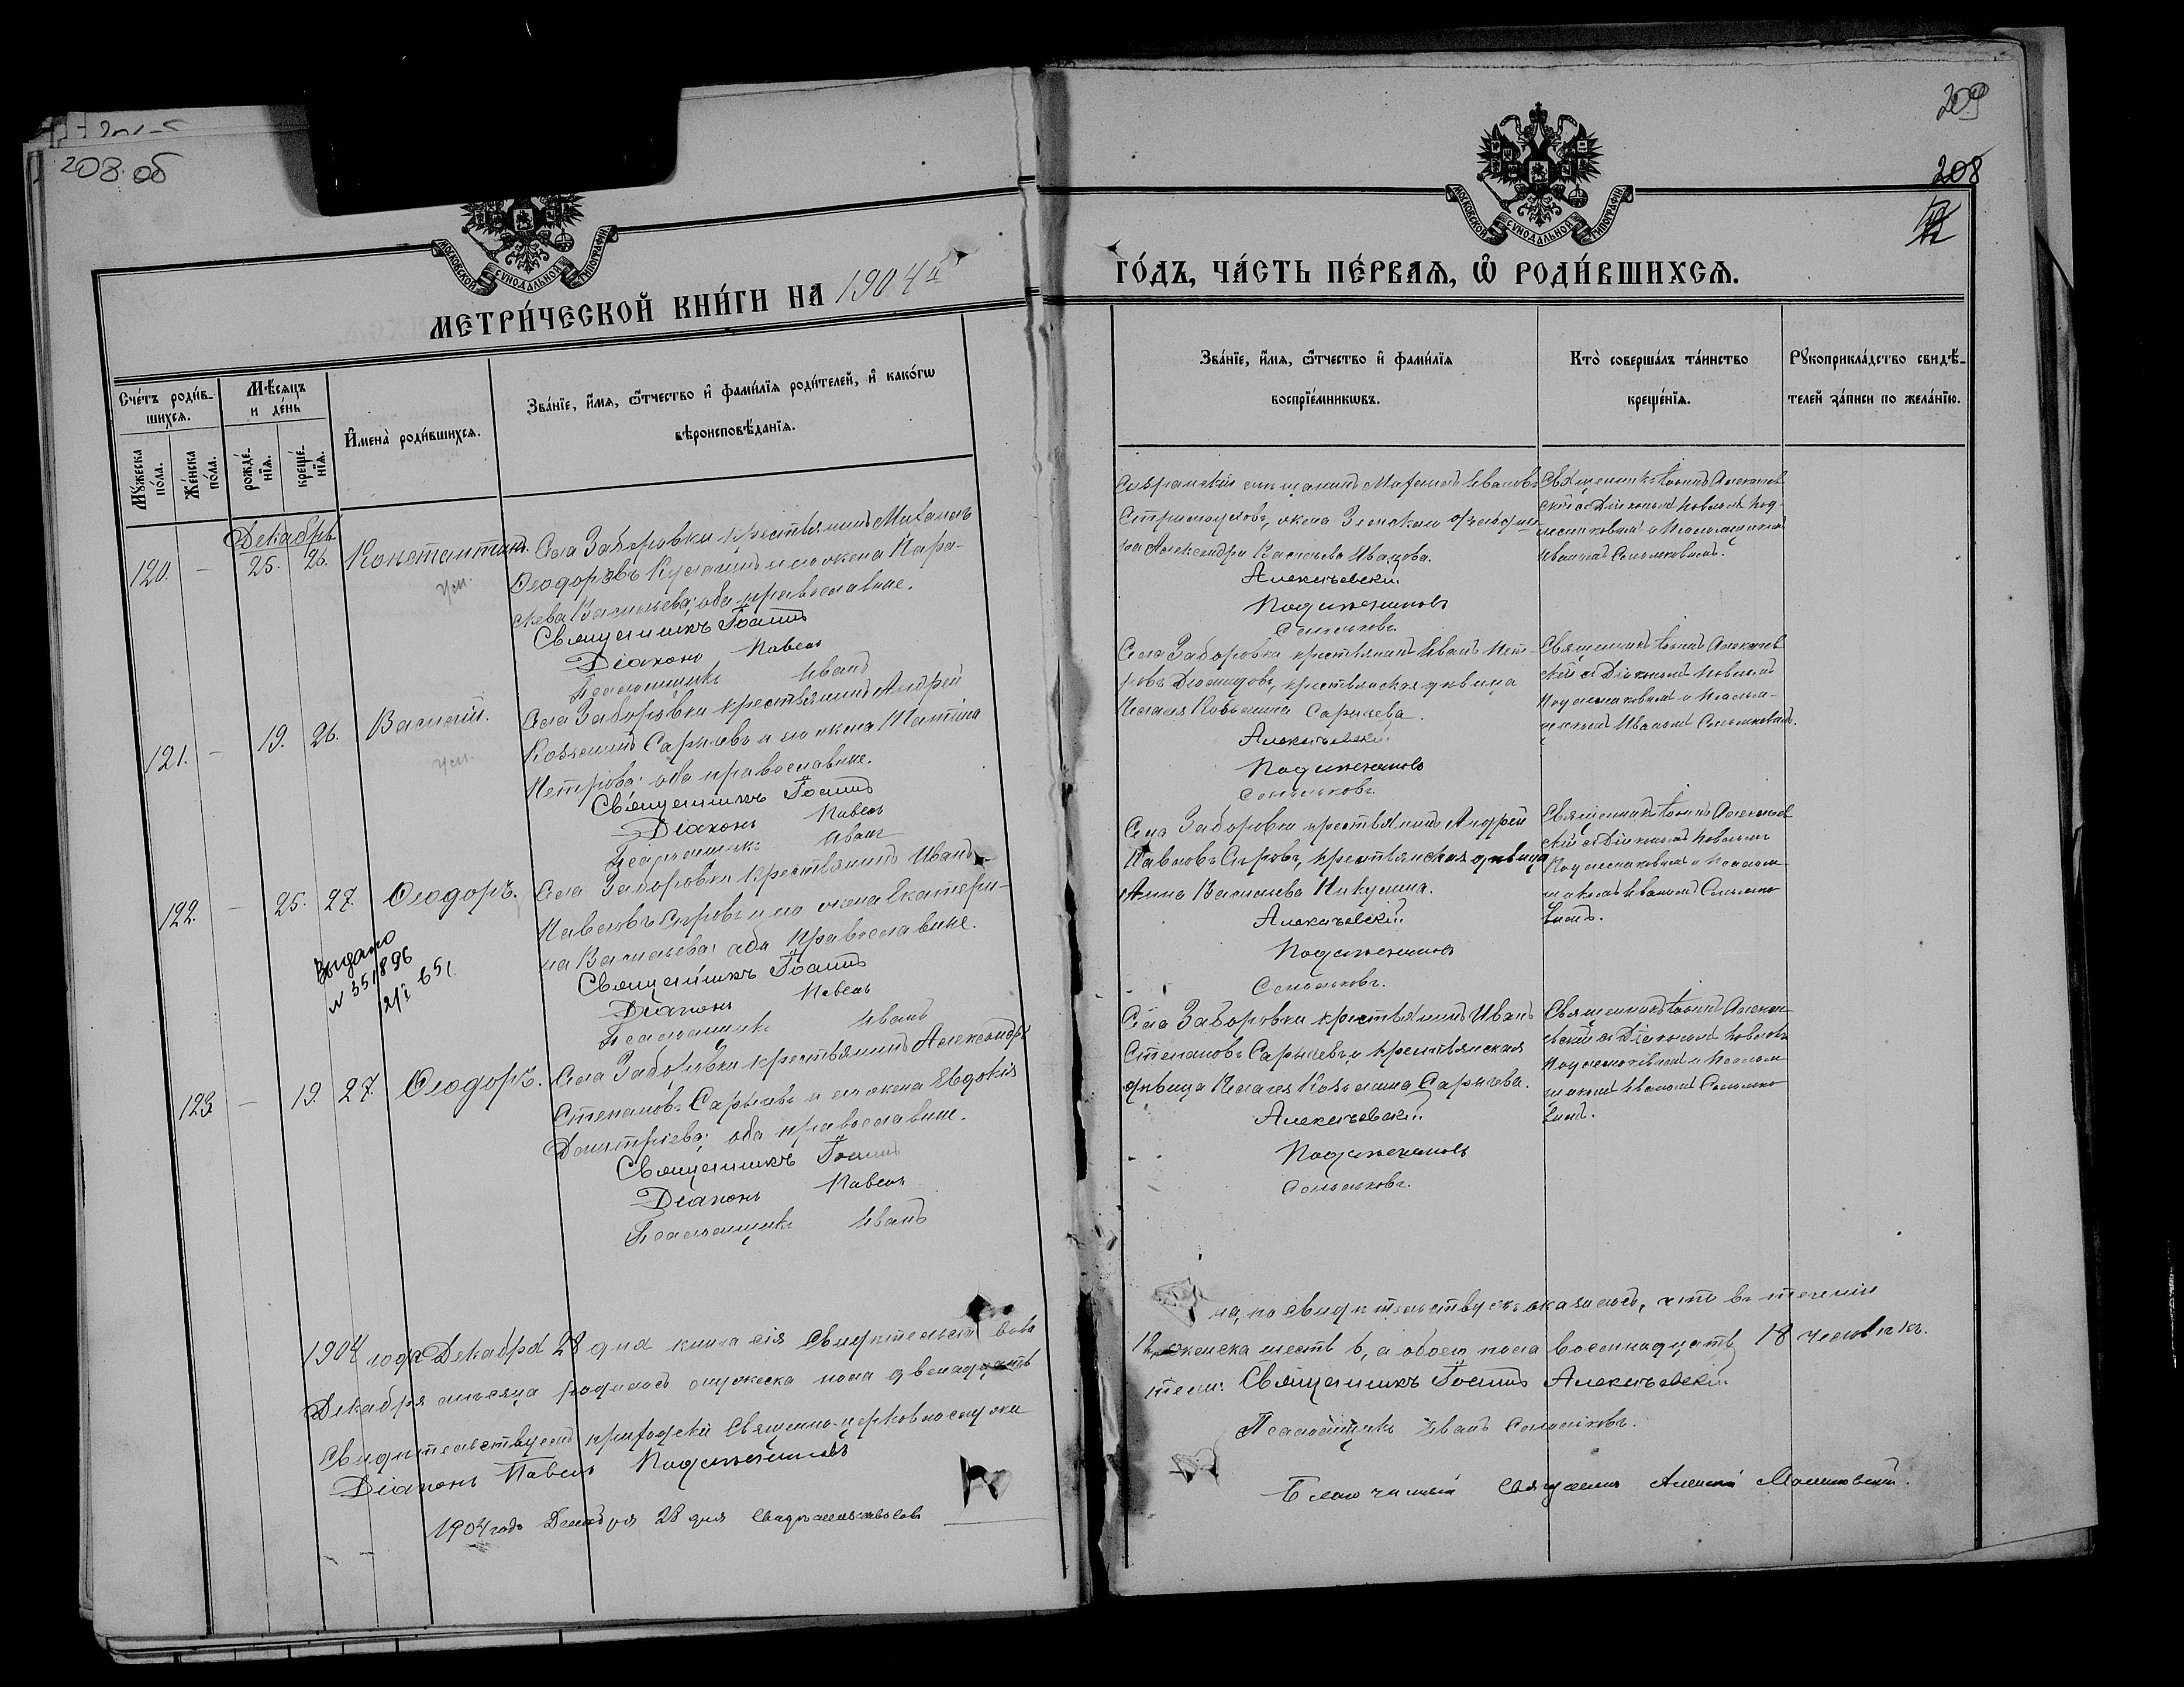 208 об
209
208
МОСКОВСКОЙ СѴНОДАЛЬНОЙ ТИПОГРАФІИ
МОСКОВСКОЙ СѴНОДАЛЬНОЙ ТИПОГРАФІИ
МЕТРИ́ЧЕСКОЙ КНИ́ГИ НА 1904й
ГО́ДЪ, ЧА́СТЬ ПЕ́РВАѦ, Ѽ РОДИ́ВШИХСѦ.
Сче́тъ роди́в-
шихсѧ.
Мꙋ́жеска по́ла.
Же́нска по́ла.
Мѣ́сяцъ
и де́нь
рожде́-
нїѧ.
креще́-
нїѧ.
И҆мена̀ роди́вшихсѧ.
Зва́нїе, и҆́мѧ, ѻ҆́тчество и҆ фами́лїѧ роди́телей, и҆ како́гѡ
вѣроисповѣ́данїѧ.
Зва́нїе, и҆́мѧ, ѻ҆́тчество и҆ фами́лїѧ
воспрїе́мникѡвъ.
Кто̀ соверша́лъ та́инство
креще́нїѧ.
Рꙋкоприкла́дство свидѣ́-
телей за́писи по жела́нїю.
Декабрь
120. — 25. 26. Константинъ.
Села Заборовки крестьянинъ Михаилъ
Ѳеодоровъ и его жена Пара-
скева Васильева; оба православные.
Священникъ Іоаннъ
Діаконъ Павелъ
Псаломщикъ Иванъ
Сызранскій мѣщанинъ Ивановъ
жена Земскаго
Александра Васильева
Алексѣевскій
Подъяпезновъ
Священникъ Іоаннъ Алексѣев-
скій съ Діакономъ Павломъ
и Псаломщикомъ
Иваномъ
121. — 19. 26. Василій.
Села Заборовки крестьянинъ Андрей
Козьминъ Сарычевъ и его жена
Петрова; оба православные.
Священникъ Іоаннъ
Діаконъ Павелъ
Псаломщикъ Иванъ
Села Заборовки крестьянинъ Иванъ Пет-
ровъ Діомидовъ, крестьянская дѣвица
Пелагея Козьмина Сарычева.
Алексѣевскій
Священникъ Іоаннъ Алексѣев-
скій съ Діакономъ Павломъ
и Псалом-
щикомъ Иваномъ
122. — 25. 27. Ѳеодоръ.
Выдано
N 351896
Села Заборовки крестьянинъ Иванъ
Павловъ Сыровъ и его жена Екатери-
на Васильева; оба православные.
Священникъ Іоаннъ
Діаконъ Павелъ
Псаломщикъ Иванъ
Села Заборовки крестьянинъ Андрей
Павловъ Сыровъ, крестьянская дѣвица
Анна Васильева Никулина.
Алексѣевскій
Священникъ Іоаннъ Алексѣев-
скій съ Діакономъ Павломъ
и Псалом-
щикомъ Иваномъ
123 — 19. 27. Ѳеодоръ.
Села Заборовки крестьянинъ Александръ
Степановъ Сарычевъ и его жена Евдокія
Димитріева; оба православные.
Священникъ Іоаннъ
Діаконъ Павелъ
Псаломщикъ Иванъ
Села Заборовки крестьянинъ Иванъ
Степановъ Сарычевъ, и крестьянская
дѣвица Пелагея Козьмина Сарычева.
Алексѣевскій
Священникъ Іоаннъ Алексѣ-
евскій съ Діакономъ Павломъ
и Псалом-
щикомъ Иваномъ
1904 года Декабря 28 дня книга сія Свидѣтельствова
на, по свидѣтельству же оказалось, что въ теченіи
Декабря мѣсяца родилось мужеска пола двѣнадцать
12, женска шесть 6, а обоего пола восемнадцать 18 человѣкъ.
Свидѣтельствуемъ приходскіе Священно-церковнослужи
тели: Священникъ Іоаннъ Алексѣевскій
Діаконъ Павелъ
Псаломщикъ Иванъ
1904 года Декабря 28 дня Свидѣтельствовалъ
Благочинный Священникъ Алексій